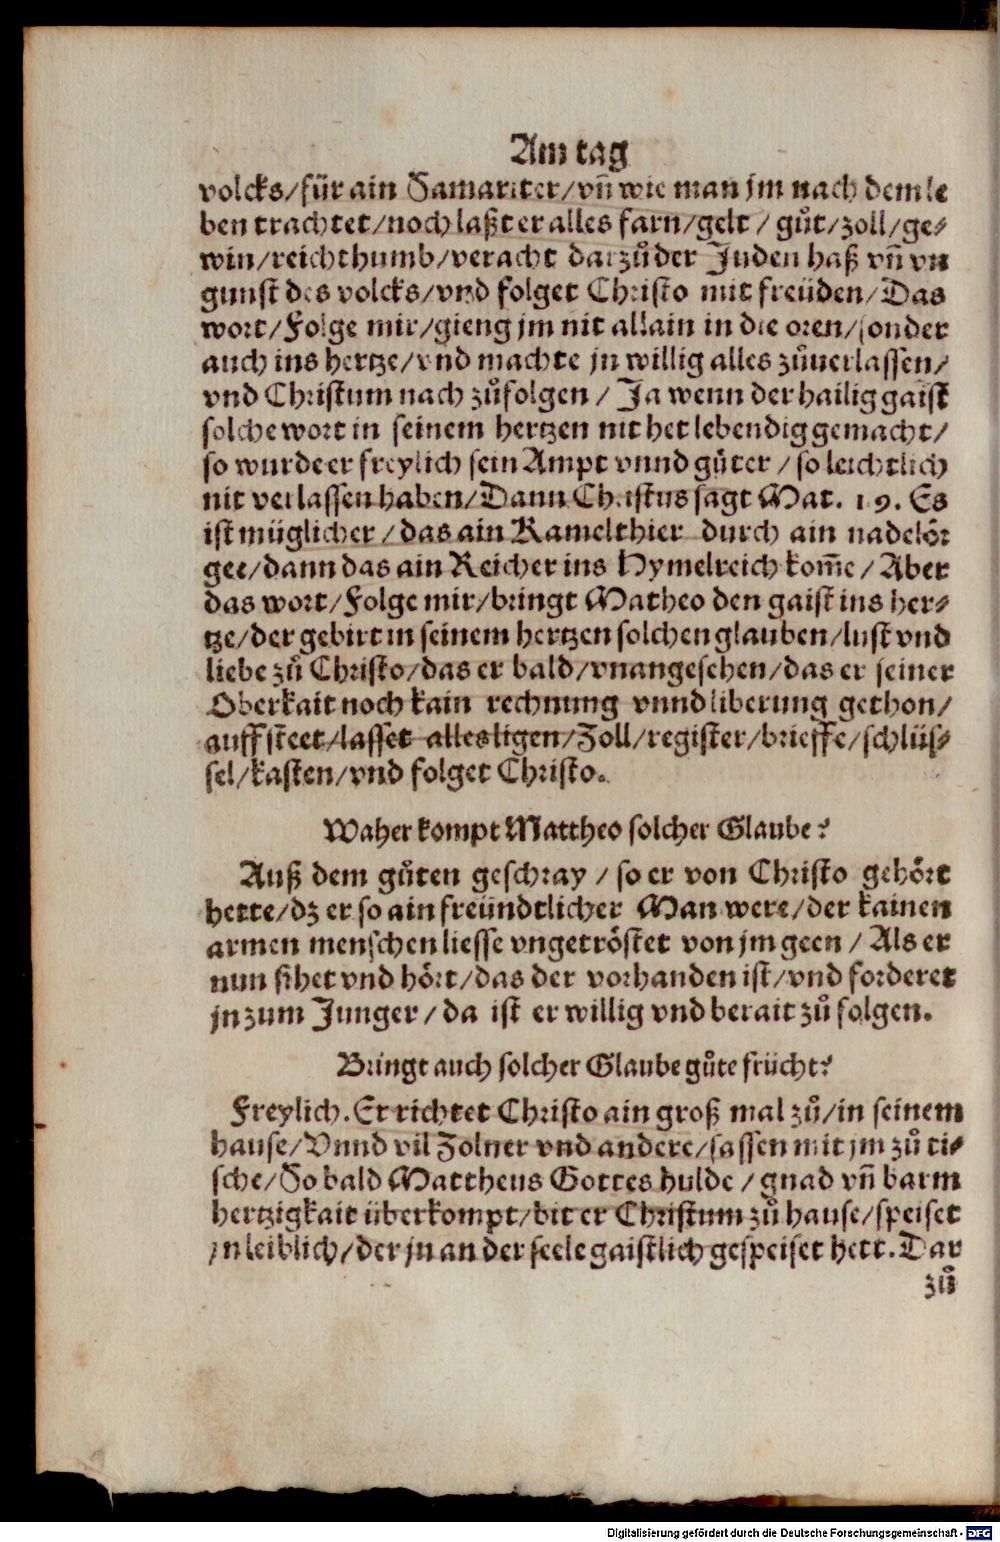 Am tag
volcks/für ain Samariter/vñ wie man jm nach dem le
ben trachtet/noch laßt er alles farn/gelt/gůt/zoll/ge⸗
win/reichthumb/veracht darzů der Juden haß vñ vn
gunst des volcks/vnd folget Christo mit freüden/Das
wort/Folge mir/gieng jm nit allain in die oren/sonder
auch ins hertze/vnd machte jn willig alles zůuerlassen/
vnd Christum nach zůfolgen/Ja wenn der hailig gaist
solche wort in seinem hertzen nit het lebendig gemacht/
so wurde er freylich sein Ampt vnnd gůter/so leichtlich
nit verlassen haben/Dann Christus sagt Mat. 19. Es
ist müglicher/das ain Kamelthier durch ain nadelör
gee/dann das ain Reicher ins Hymelreich kom̄e/Aber
das wort/Folge mir/bringt Matheo den gaist ins her⸗
tze/der gebirt in seinem hertzen solchen glauben/lust vnd
liebe zů Christo/das er bald/vnangesehen/das er seiner
Oberkait noch kain rechnung vnnd liberung gethon/
auff steet/lasset alles ligen/Zoll/register/brieffe/schlüs⸗
sel/kasten/vnd folget Christo.
Waher kompt Mattheo solcher Glaube?
Auß dem gůten geschray/so er von Christo gehört
hette/dz er so ain freündtlicher Man were/der kainen
armen menschen liesse vngetröstet von jm geen/Als er
nun sihet vnd hört/das der vorhanden ist/vnd forderet
jn zum Junger/da ist er willig vnd berait zů folgen.
Bringt auch solcher Glaube gůte frücht?
Freylich. Er richtet Christo ain groß mal zů/in seinem
hause/Vnnd vil Zolner vnd andere/sassen mit jm zů ti⸗
sche/So bald Mattheus Gottes hulde/gnad vñ barm
hertzigkait überkompt/bit er Christum zů hause/speiset
jn leiblich/der jn an der seele gaistlich gespeiset hett. Dar
zů
Digitalisierung gefördert durch die Deutsche Forschungsgemeinschaft - DFG